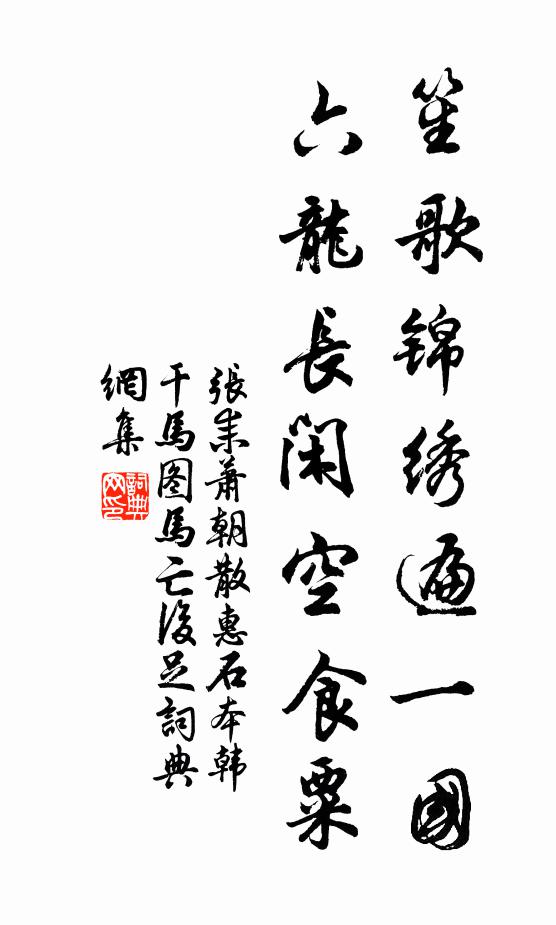 笙歌锦绣遍一國
六龍長閑空食粟
張耒蕭朝散惠石本韩
干馬图馬亡後足詞典
網集
詞典網印